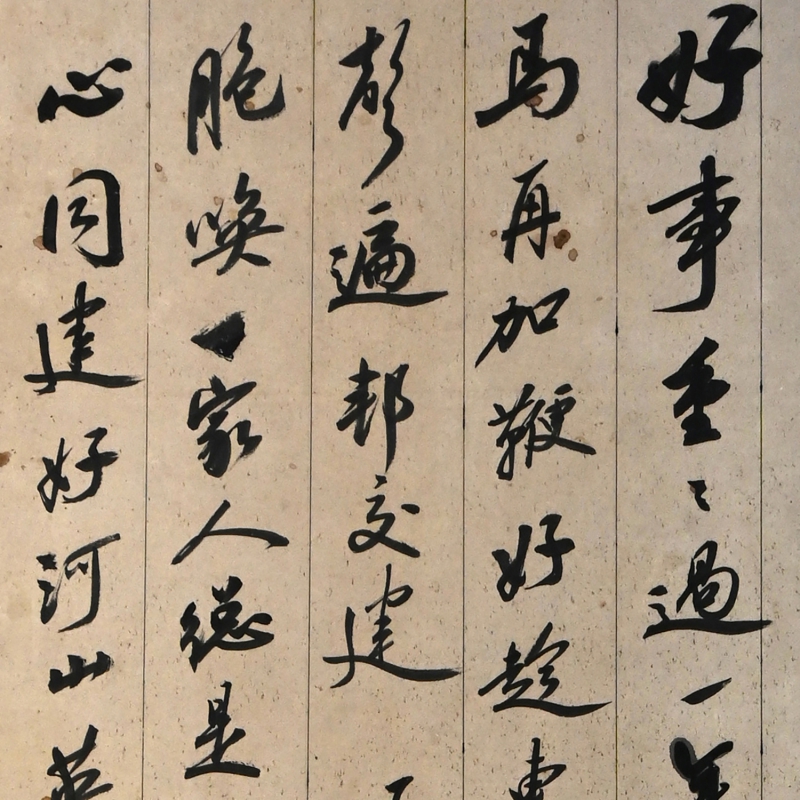 好事重々過一
馬再加鞭好趁
遍邦交建
胞喚一家人總是
心同建好河山